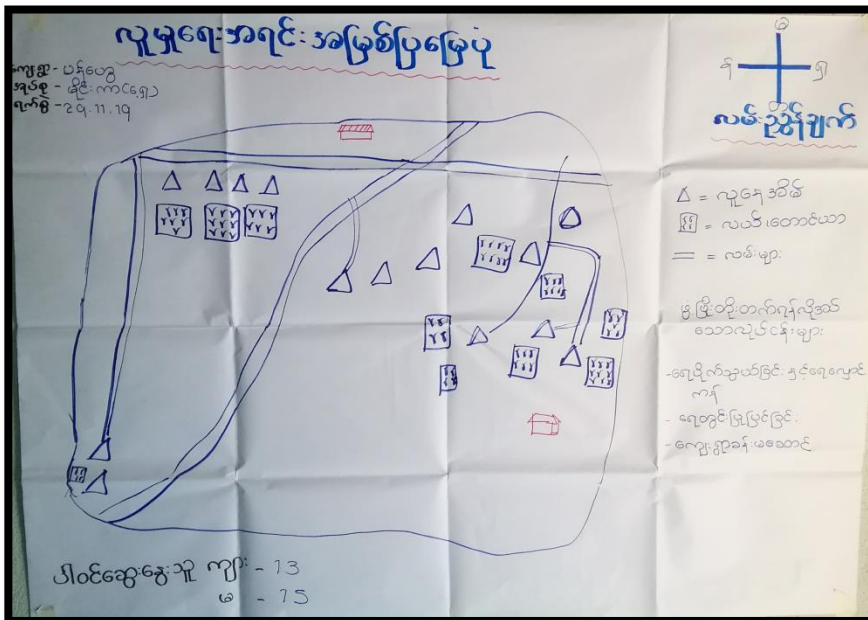 လူမှုရေးအရင်းအမြစ်ပြမြေပုံ
ကျေးရွာ - ပန်ဟွေ
အုပ်စု - ခိုင်းကာ(ရှေ့)
ရက်စွဲ - 29.11.19
လမ်းညွှန်ချက်
△ = လူနေအိမ်
= လယ်/တောင်ယာ
= လမ်းများ
ဖွံ့ဖြိုးတိုးတက်ရန်လိုအပ်
သောလုပ်ငန်းများ
-ရေပိုက်သွယ်ခြင်း နှင့်ရေလှောင်
ကန်
- ရေတွင်းပြုပြင်ခြင်း
-ကျေးရွာခန်းမဆောင်
ပါဝင်ဆွေးနွေးသူ ကျား - 13
မ - 15